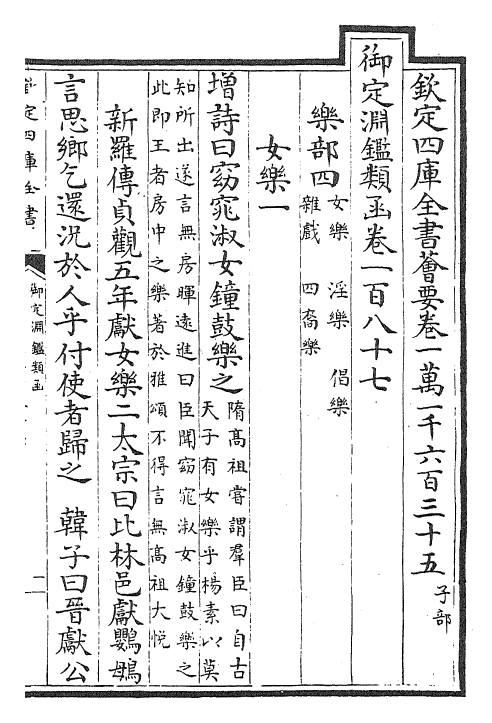 欽定四庫全書薈要卷一萬一千六百三十五 子部
御定淵鑑類函卷一百八十七
樂部四 女樂 淫樂 倡樂
雜戲 四裔樂
女樂一
增詩曰窈窕淑女鐘鼓樂之 隋髙祖嘗謂羣臣曰自古
天子有女樂乎楊素以莫
知所出遂言無房暉遠進曰臣聞窈窕淑女鐘鼓樂之
此即王者房中之樂著於雅頌不得言無髙祖大悅
新羅傳貞觀五年獻女樂二太宗曰比林邑獻鸚鵡
言思鄉乞還況於人乎付使者歸之 韓子曰晉獻公
欽定四庫全書
御定淵鑑類函
一